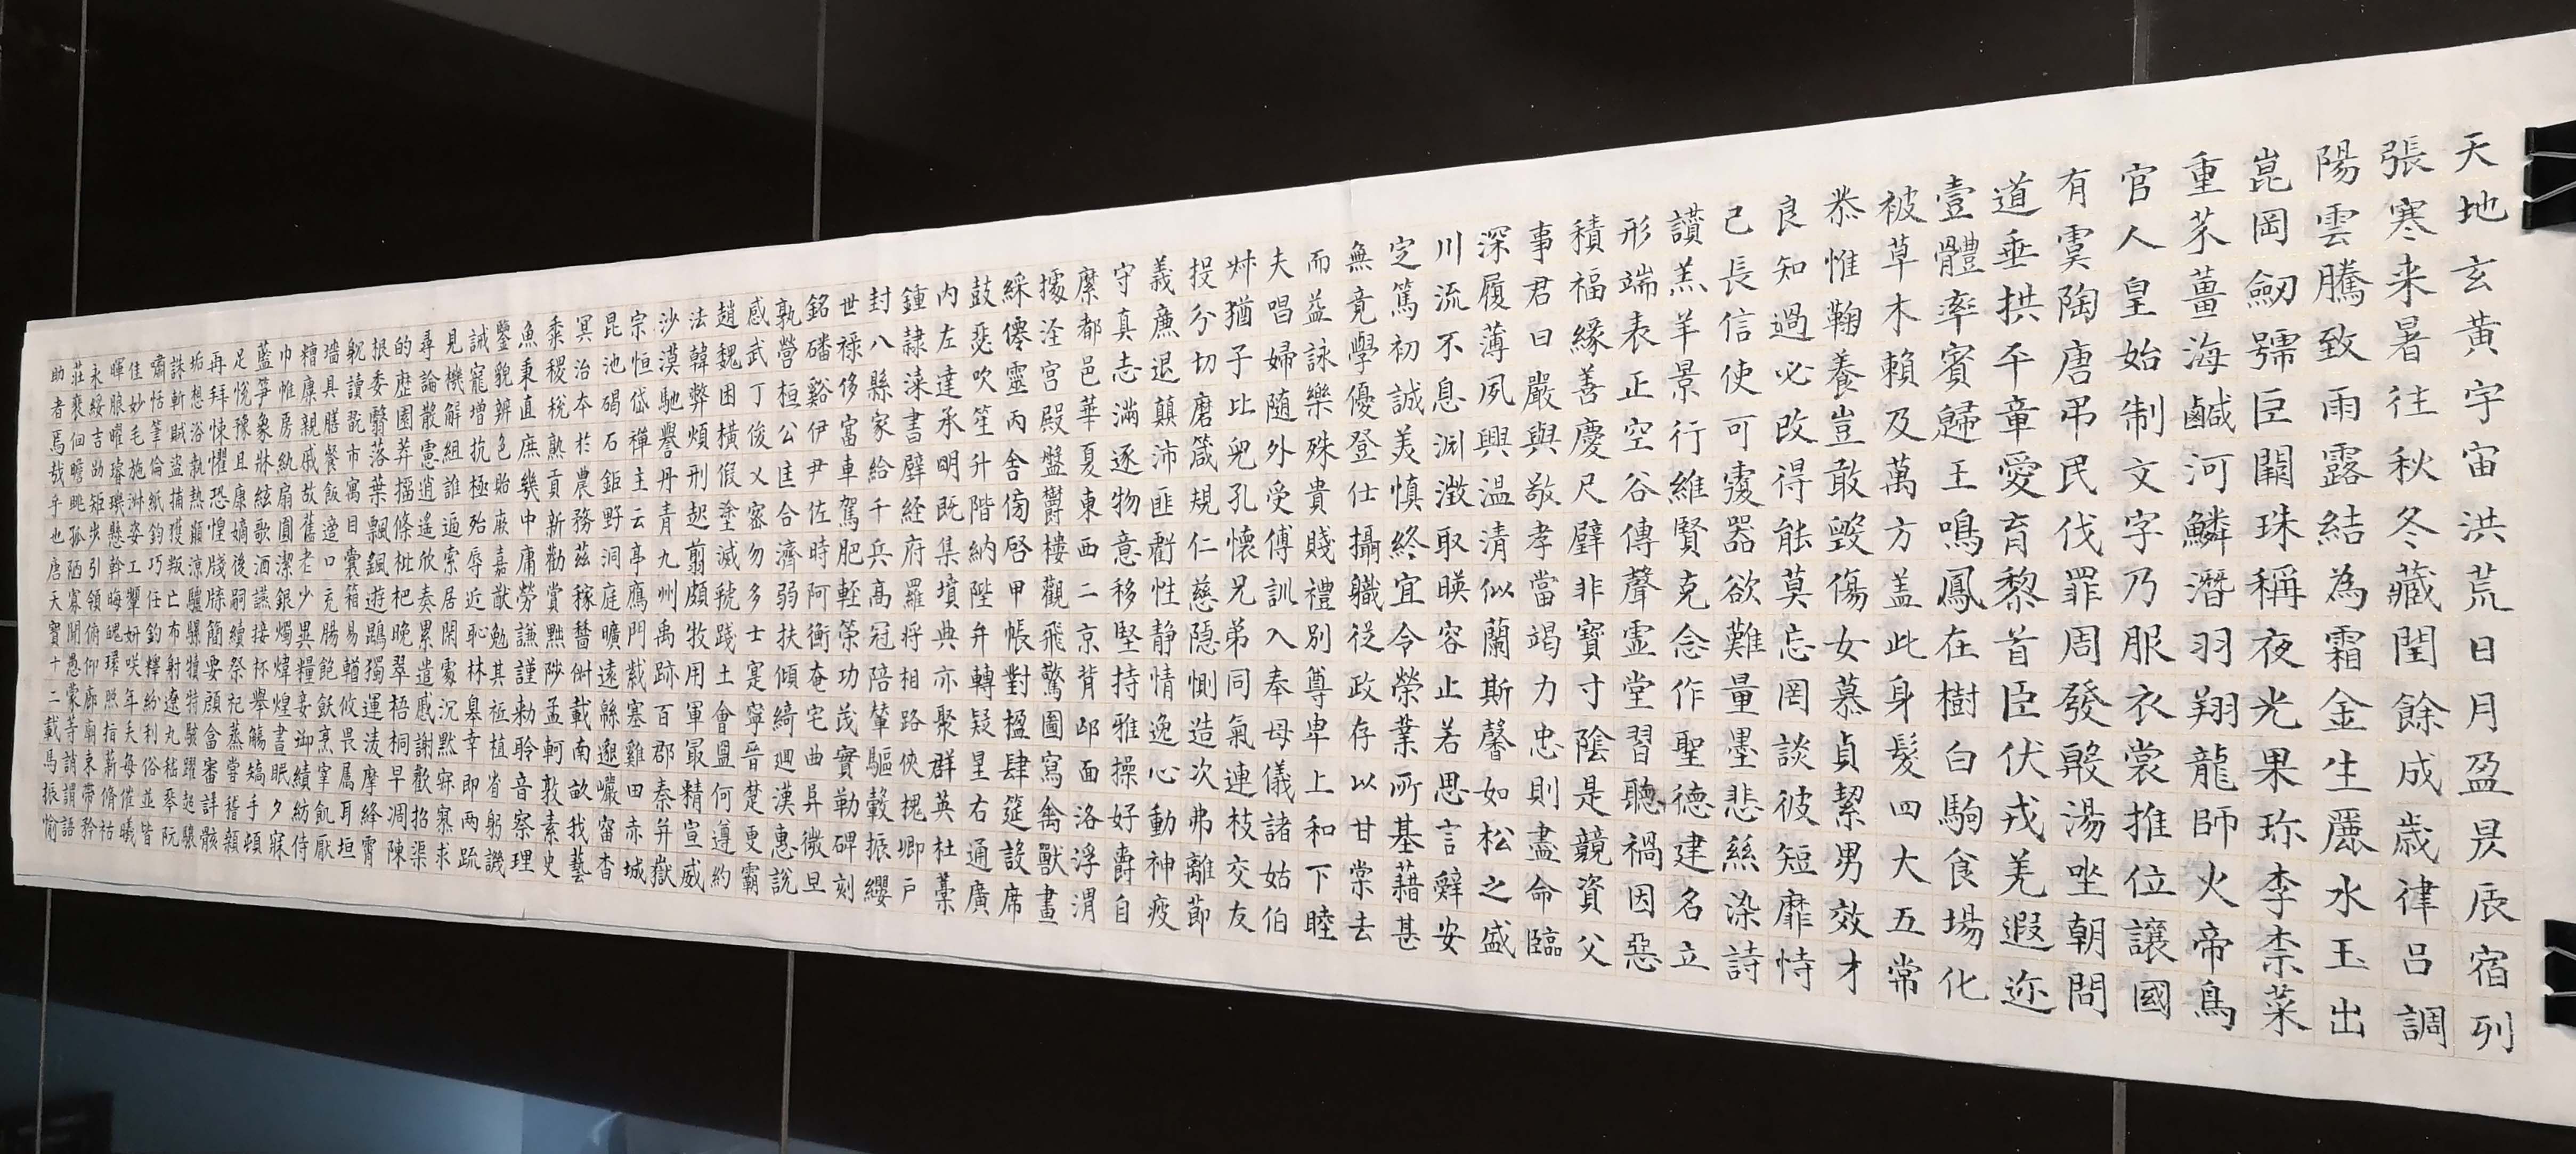 天地玄黃宇宙洪荒日月盈昃辰宿列
張寒来暑往秋冬藏閏餘成歲律呂調
陽雲騰致雨露結為霜金生麗水玉出
崑岡劒號巨闕珠稱夜光果珎李柰菜
重芥薑海鹹河鱗潛羽翔龍師火帝鳥
官人皇始制文字乃服衣裳推位讓國
有虞陶唐弔民伐罪周發殷湯坐朝問
道垂拱平章愛育黎首臣伏戎羌遐迩
壹體率賓歸王鳴鳳在樹白駒食場化
被草木賴及萬方盖此身髮四大五常
恭惟鞠養豈敢毀傷女慕貞絜男效才
良知過必改得能莫忘罔談彼短靡恃
己長信使可覆器欲難量墨悲絲染詩
讃羔羊景行維賢克念作聖德建名立
形端表正空谷傳聲虛堂習聽禍因惡
積福緣善慶尺璧非寶寸陰是競資父
事君曰嚴與敬孝當竭力忠則盡命臨
深履薄夙興温凊似蘭斯馨如松之盛
川流不息淵澂取暎容止若思言辭安
定篤初誠美慎終宜令榮業所基藉甚
無竟學優登仕攝職従政存以甘棠去
而益詠樂殊貴賤禮別尊卑上和下睦
夫唱婦随外受傅訓入奉母儀諸姑伯
叔猶子比兒孔懷兄弟同氣連枝交友
投分切磨箴規仁慈隱惻造次弗離節
義廉退顛沛匪虧性静情逸心動神疲
守真志滿逐物意移堅持雅操好爵自
縻都邑華夏東西二京背邙面洛浮渭
據涇宮殿盤欝樓觀飛驚圖寫禽獸畫
綵僊靈丙舎傍啓甲帳對楹肆筵設席
鼓瑟吹笙升階納陛弁轉疑星右通廣
內左達承明既集墳典亦聚群英杜稾
鍾隸漆書壁経府羅將相路俠槐卿戶
封八縣家給千兵高冠陪輦驅轂振纓
世祿侈富車駕肥輕榮功茂實勒碑刻
銘磻谿伊尹佐時阿衡奄宅曲阜微旦
孰營桓公匡合濟弱扶傾綺迴漢惠說
感武丁俊乂密勿多士寔寧晉楚更霸
趙魏困橫假塗滅虢踐土會盟何遵約
法韓弊煩刑起翦頗牧用軍最精宣威
沙漠馳譽丹青九州禹跡百郡秦并嶽
宗恒岱禪主云亭鴈門紫塞雞田赤城
昆池碣石鉅野洞庭曠遠緜邈巖杳
冥治本於農務茲稼穡俶載南畝我藝
黍稷稅熟貢新勸賞黜陟孟軻敦素史
魚秉直庶幾中庸勞謙謹勑聆音察理
鑒貌辨色貽厥嘉猷勉其祗植省躬譏
誡寵增抗極殆辱近恥林皋幸即兩疏
見機解組誰逼索居閑處沉默寂寥求
尋論散慮逍遙欣奏累遣慼謝歡招渠
的歷園莽抽條枇杷晚翠梧桐早凋陳
根委翳落葉飄颻遊鵾獨運凌摩絳霄
躭讀翫市寓目囊箱易輶攸畏属耳垣
墻具膳餐飯適口充腸飽飫烹宰飢厭
糟糠親戚故舊老少異糧妾御績紡侍
巾帷房紈扇圓潔銀燭煒煌晝眠夕寐
藍笋象牀絃歌酒讌接杯舉觴矯手頓
足悅豫且康嫡後嗣續祭祀蒸嘗稽顙
再拜悚懼恐惶牋牒簡要顧畣審詳骸
垢想浴執熱願涼驢騾犢特駭躍超驤
誅斬賊盜捕獲叛亡布射遼丸嵇琴阮
嘯恬筆倫紙鈞巧任釣釋紛利俗並皆
佳妙毛施淑姿工顰妍咲年矢每催曦
暉朗曜璿璣懸斡晦魄環照指薪脩祜
永綏吉劭矩步引領俯仰廊廟束帶矜
莊裴佪瞻眺孤陋寡聞愚蒙等誚謂語
助者焉哉乎也唐天寳十二載馬振愉